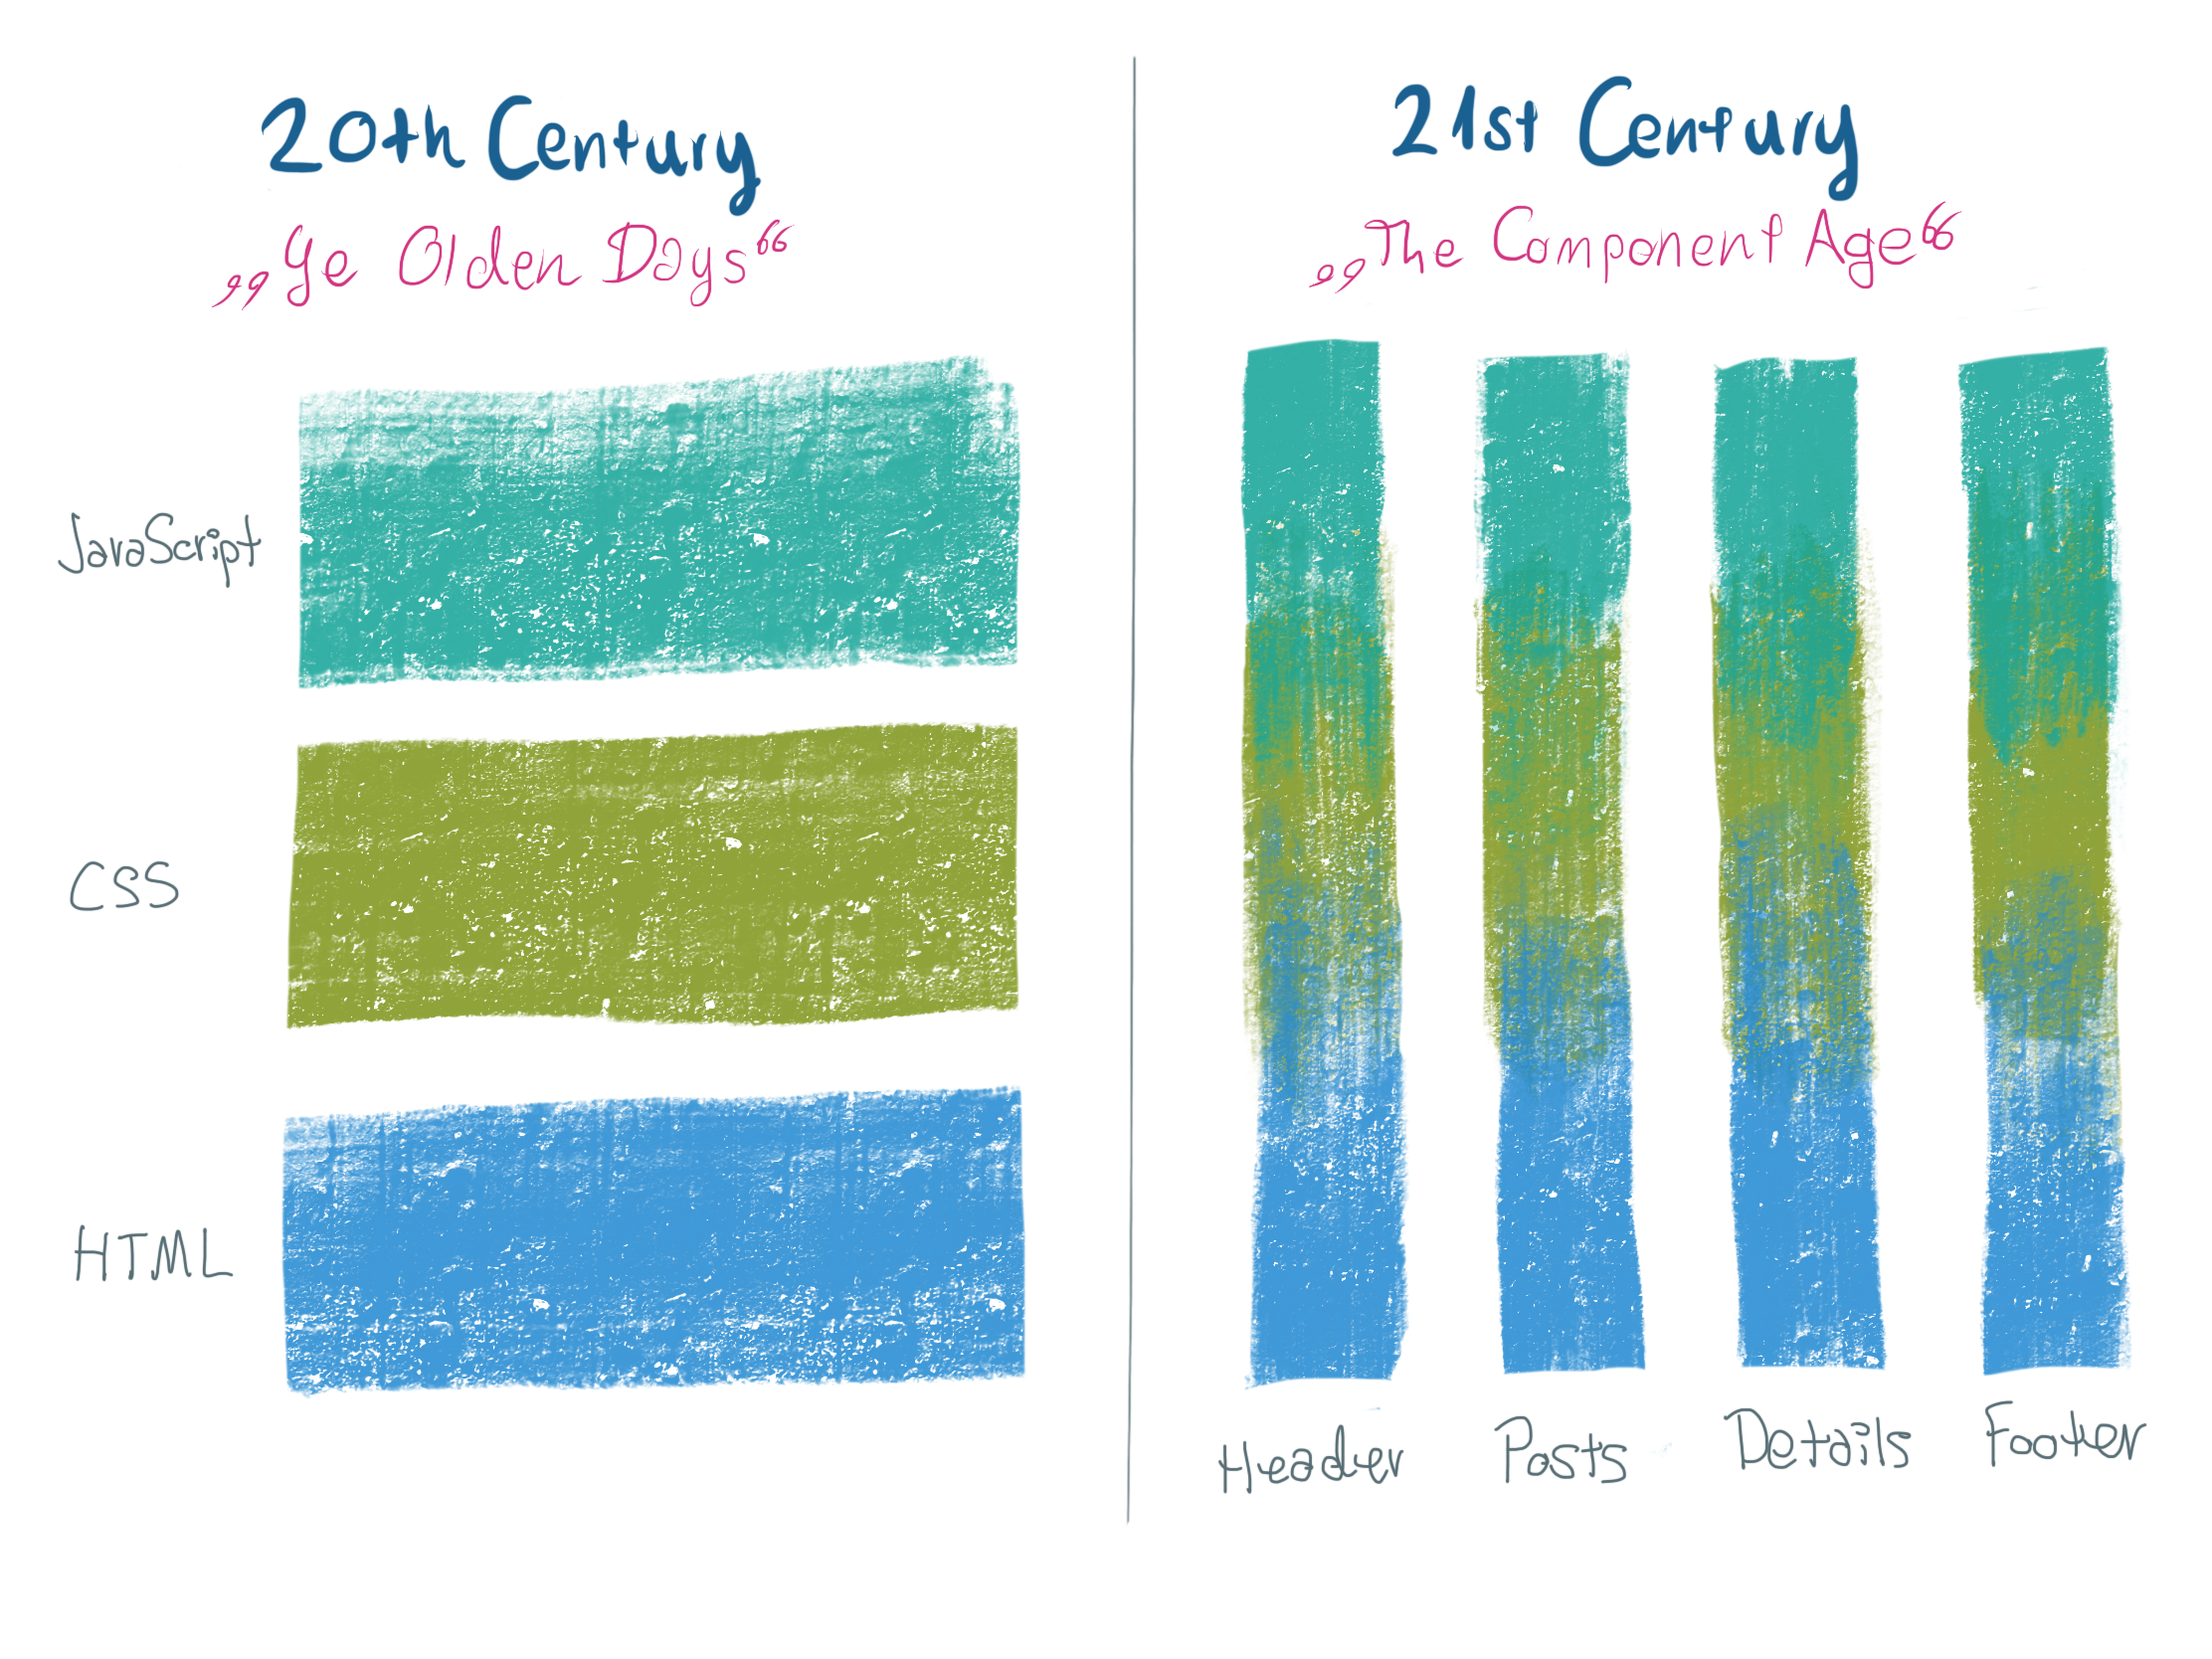 20th Century
„Ye Olden Days“
JavaScript
CSS
HTML
21st Century
„The Component Age“
Header
Posts
Details
Footer